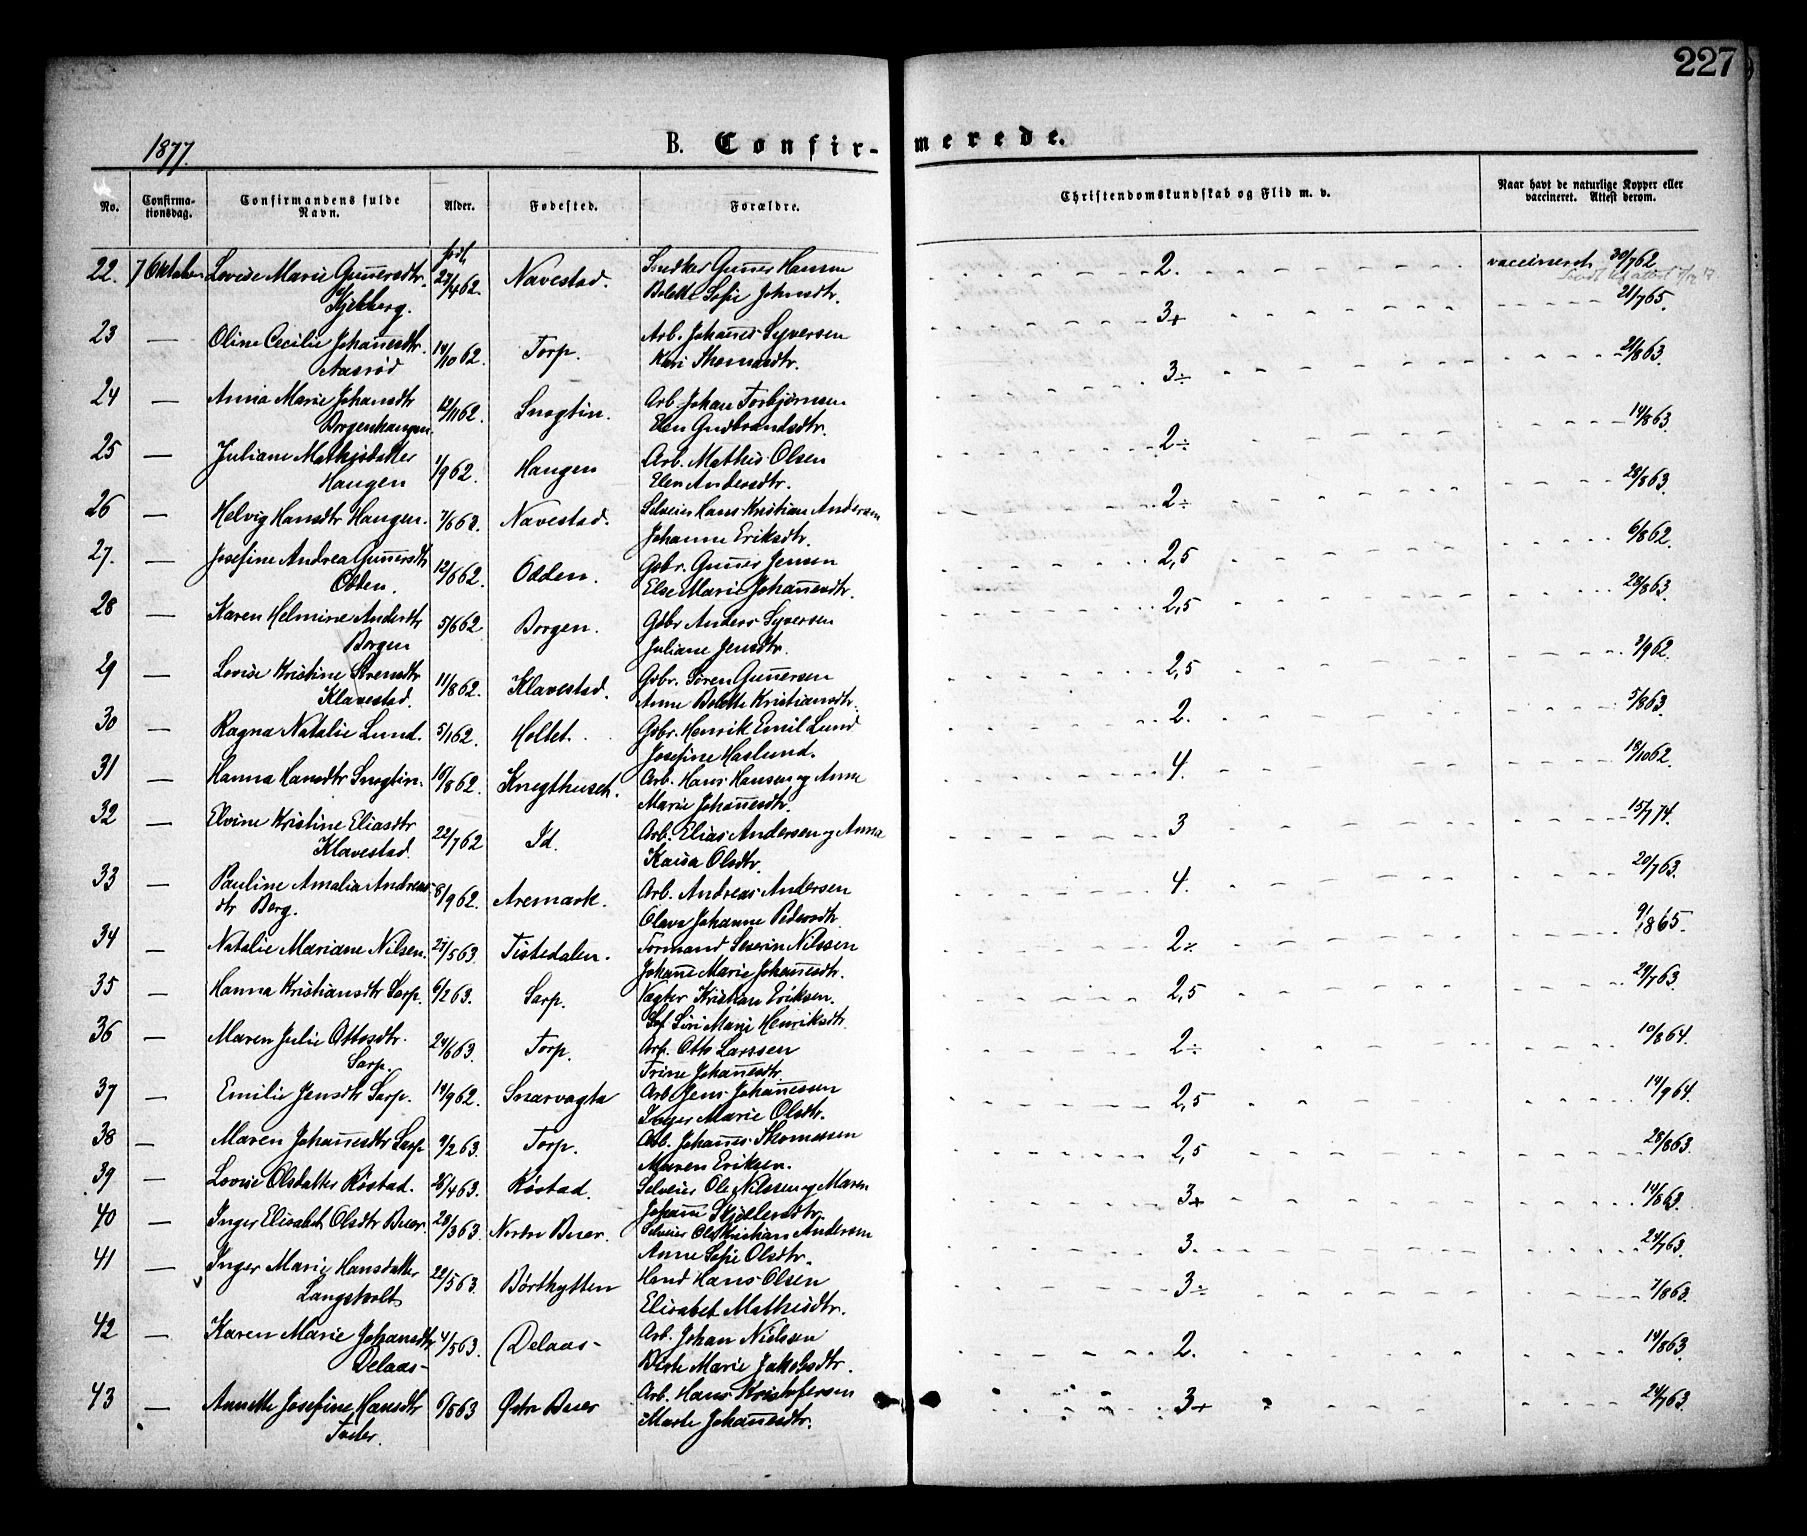 227
1877.
B. Confirmerede.
No. Confirmationsdag. Confirmandens fulde Navn. Alder. Fødested. Forældre. Christendomskundskab og Flid m. v. Naar havt de naturlige Kopper eller vaccineret. Attest derom.
22. 7 Oktober Lovise Marie Gunnersdtr. født 27/4 62. Navestad. Snedker Gunner Hansen 2. vaccineret 30/7 62
Kjelberg. Bolette Sofie Johnsdtr.
23 — Oline Cecilie Johannesdtr. 14/10 62. Torp. Arb. Johannes Syversen 3+ 21/7 65.
Aasrød Kari Thomasdtr.
24 — Anna Marie Johansdtr 12/11 62. Snogtin. Arb. Johan Torbjørnsen 3÷ 21/8 63.
Borgenhaugen. Elen Gudbrandsdtr.
25 — Juliane Mathisdatter 1/9 62. Haugen Arb. Mathis Olsen 2÷ 14/8 63.
Haugen Elen Andersdtr.
26 — Helvig Hansdtr Haugen. 7/6 62. Navestad. Selveier Hans Kristian Andersen 2÷ 28/5 63.
Johanne Eriksdtr.
27. — Josefine Andrea Gunnersdtr 12/6 62. Odden. Gbr. Gunner Jensen 2,5 6/8 62.
Odden. Else Marie Johannesdtr.
28 — Karen Helmine Andersdtr 5/6 62 Borgen. Gbr Anders Syversen 2,5 28/8 63.
Borgen Juliane Jensdtr.
29 — Lovise Kristine Sørensdtr 11/8 62. Klavestad. Gbr. Søren Gunnersen 2,5 2/9 62.
Klavestad. Anne Bolette Kristiansdtr.
30 — Ragna Natalie Lund. 5/1 62. Holtet. Gbr. Henrik Emil Lund 2. 5/8 63.
Josefine Haslund.
31 — Hanna Hansdtr Snogtin. 16/8 62. Knegthuset. Arb. Hans Hansen og Anne 4. 18/10 62.
Marie Johannesdtr.
32 — Elvine Kristine Eliasdtr 22/7 62 Id. Arb. Elias Andersen og Anna 3 15/7 74.
Klavestad. Kaisa Olsdtr.
33 — Pauline Amalia Andreas- 8/9 62. Aremark. Arb. Andreas Andersen 4. 20/7 63.
dtr Berg. Olava Johanne Pedersdtr.
34 — Natalie Mariane Nilsen. 27/5 63. Tistedalen. Formand Severin Nilssen 2÷ 9/1 865.
Johanne Marie Johannesdtr.
35 — Hanna Kristiansdtr Sarp. 6/2 63. Sarp. Vagter Kristian Eriksen. 2,5 29/7 63.
Siri Marie Henriksdtr.
36 — Maren Julie Ottosdtr. 24/6 63. Torp. Arb. Otto Larssen 2÷ 10/8 64.
Sarp. Trine Johannesdtr.
37 — Emilie Jensdtr Sarp. 14/9 62. Snarvagta Arb Jens Johannessen 2,5 14/9 64.
Inger Marie Olsdtr.
38 — Maren Johannesdtr Sarp 9/2 63. Torp. Arb. Johannes Thomassen 2,5 28/8 63.
Maren Eriksen.
39 — Lovise Olsdatter Røstad. 26/4 63. Røstad. Selveier Ole Nilssen og Maren 3+ 14/8 63.
Johanne Skjøllersdtr.
40 — Inger Elisabet Olsdtr Buer. 28/3 63. Nordre Buer. Selveier Ole Kristian Andersen 3. 24/7 63.
Anne Sofie Olsdtr.
41 — Inger Marie Hansdatter 22/5 63. Børthytten Hand Hans Olsen 3÷ 7/8 63.
Langsholt Elisabet Mathisdtr.
42 — Karen Marie Johansdtr 4/5 63. Delaas- Arb. Johan Nielssen 2. 14/8 63.
Delaas- Berte Marie Jakobsdtr.
43 — Annette Josefine Hansdtr 6/5 63 Østre Buer Arb. Hans Kristofersen 3+ 24/7 63.
Marte Johannesdtr.